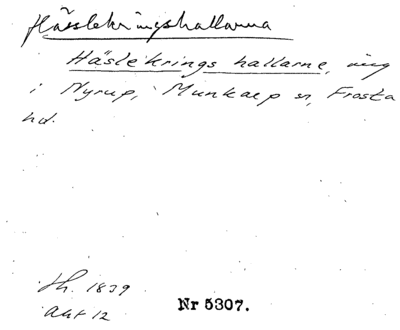 Hässlekringshallarna
Häslekrings hallarne, äng
i Nyrup, Munkarp sn, Frosta
hd.
th. 1839
akt 12
Nr 5307.